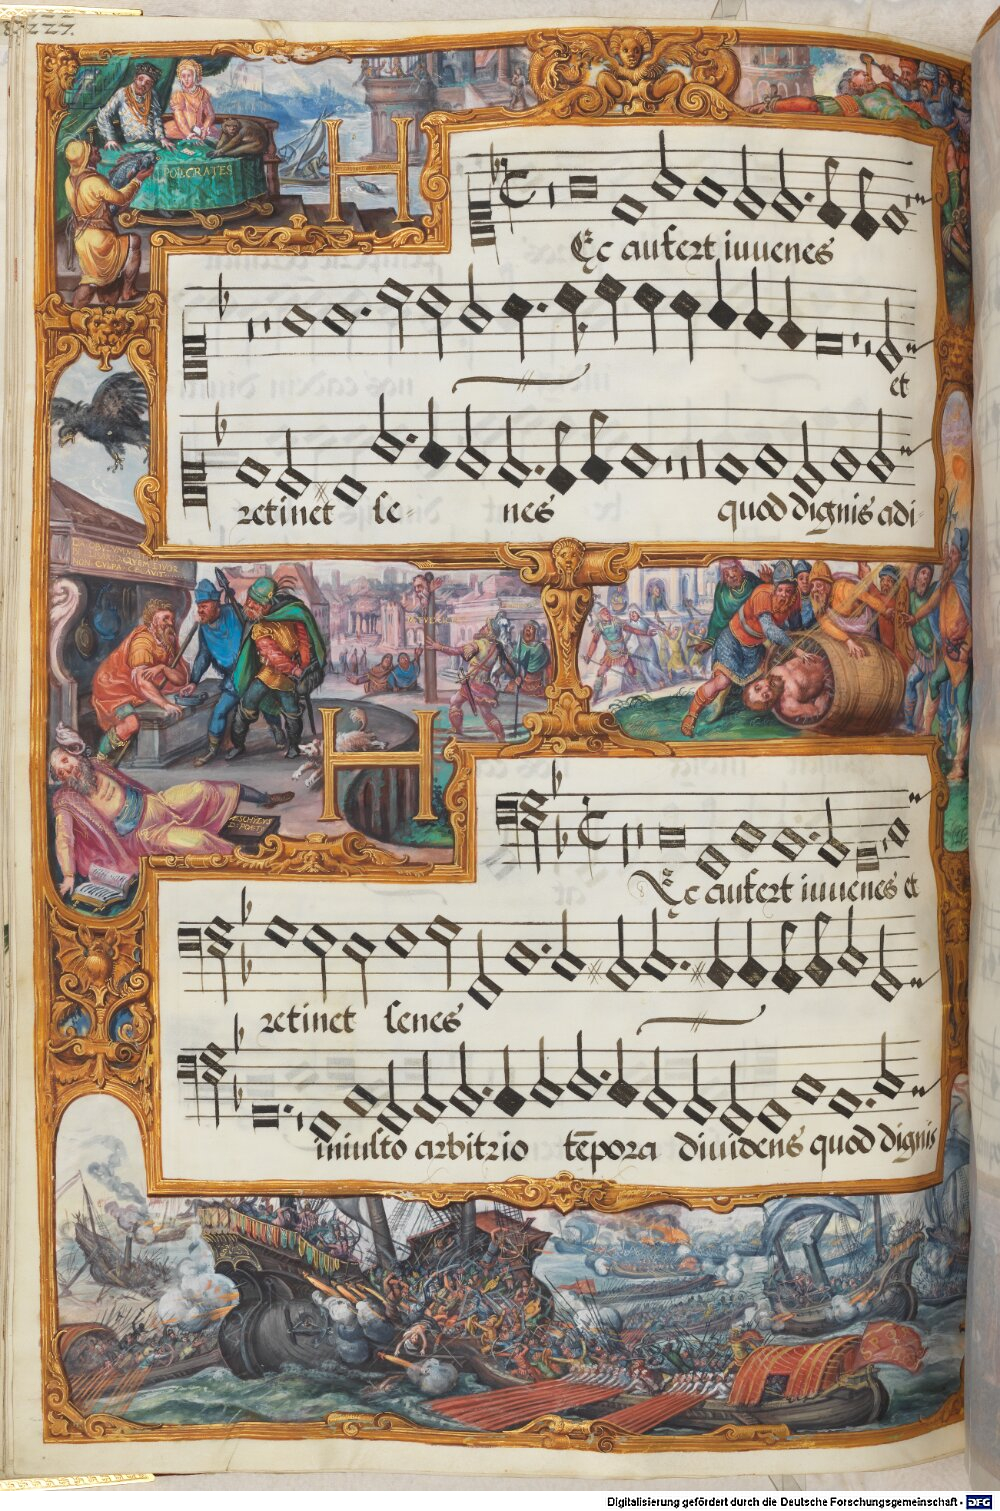 227.
POLCRATES
H
Ec aufert iuuenes
et
retinet se- nes quod dignis adi-
NON CVLPA
H
ÆSCHILVS
Ec aufert iuuenes et
retinet senes
iniusto arbitrio tēpora diuidens quod dignis
Digitalisierung gefördert durch die Deutsche Forschungsgemeinschaft - DFG